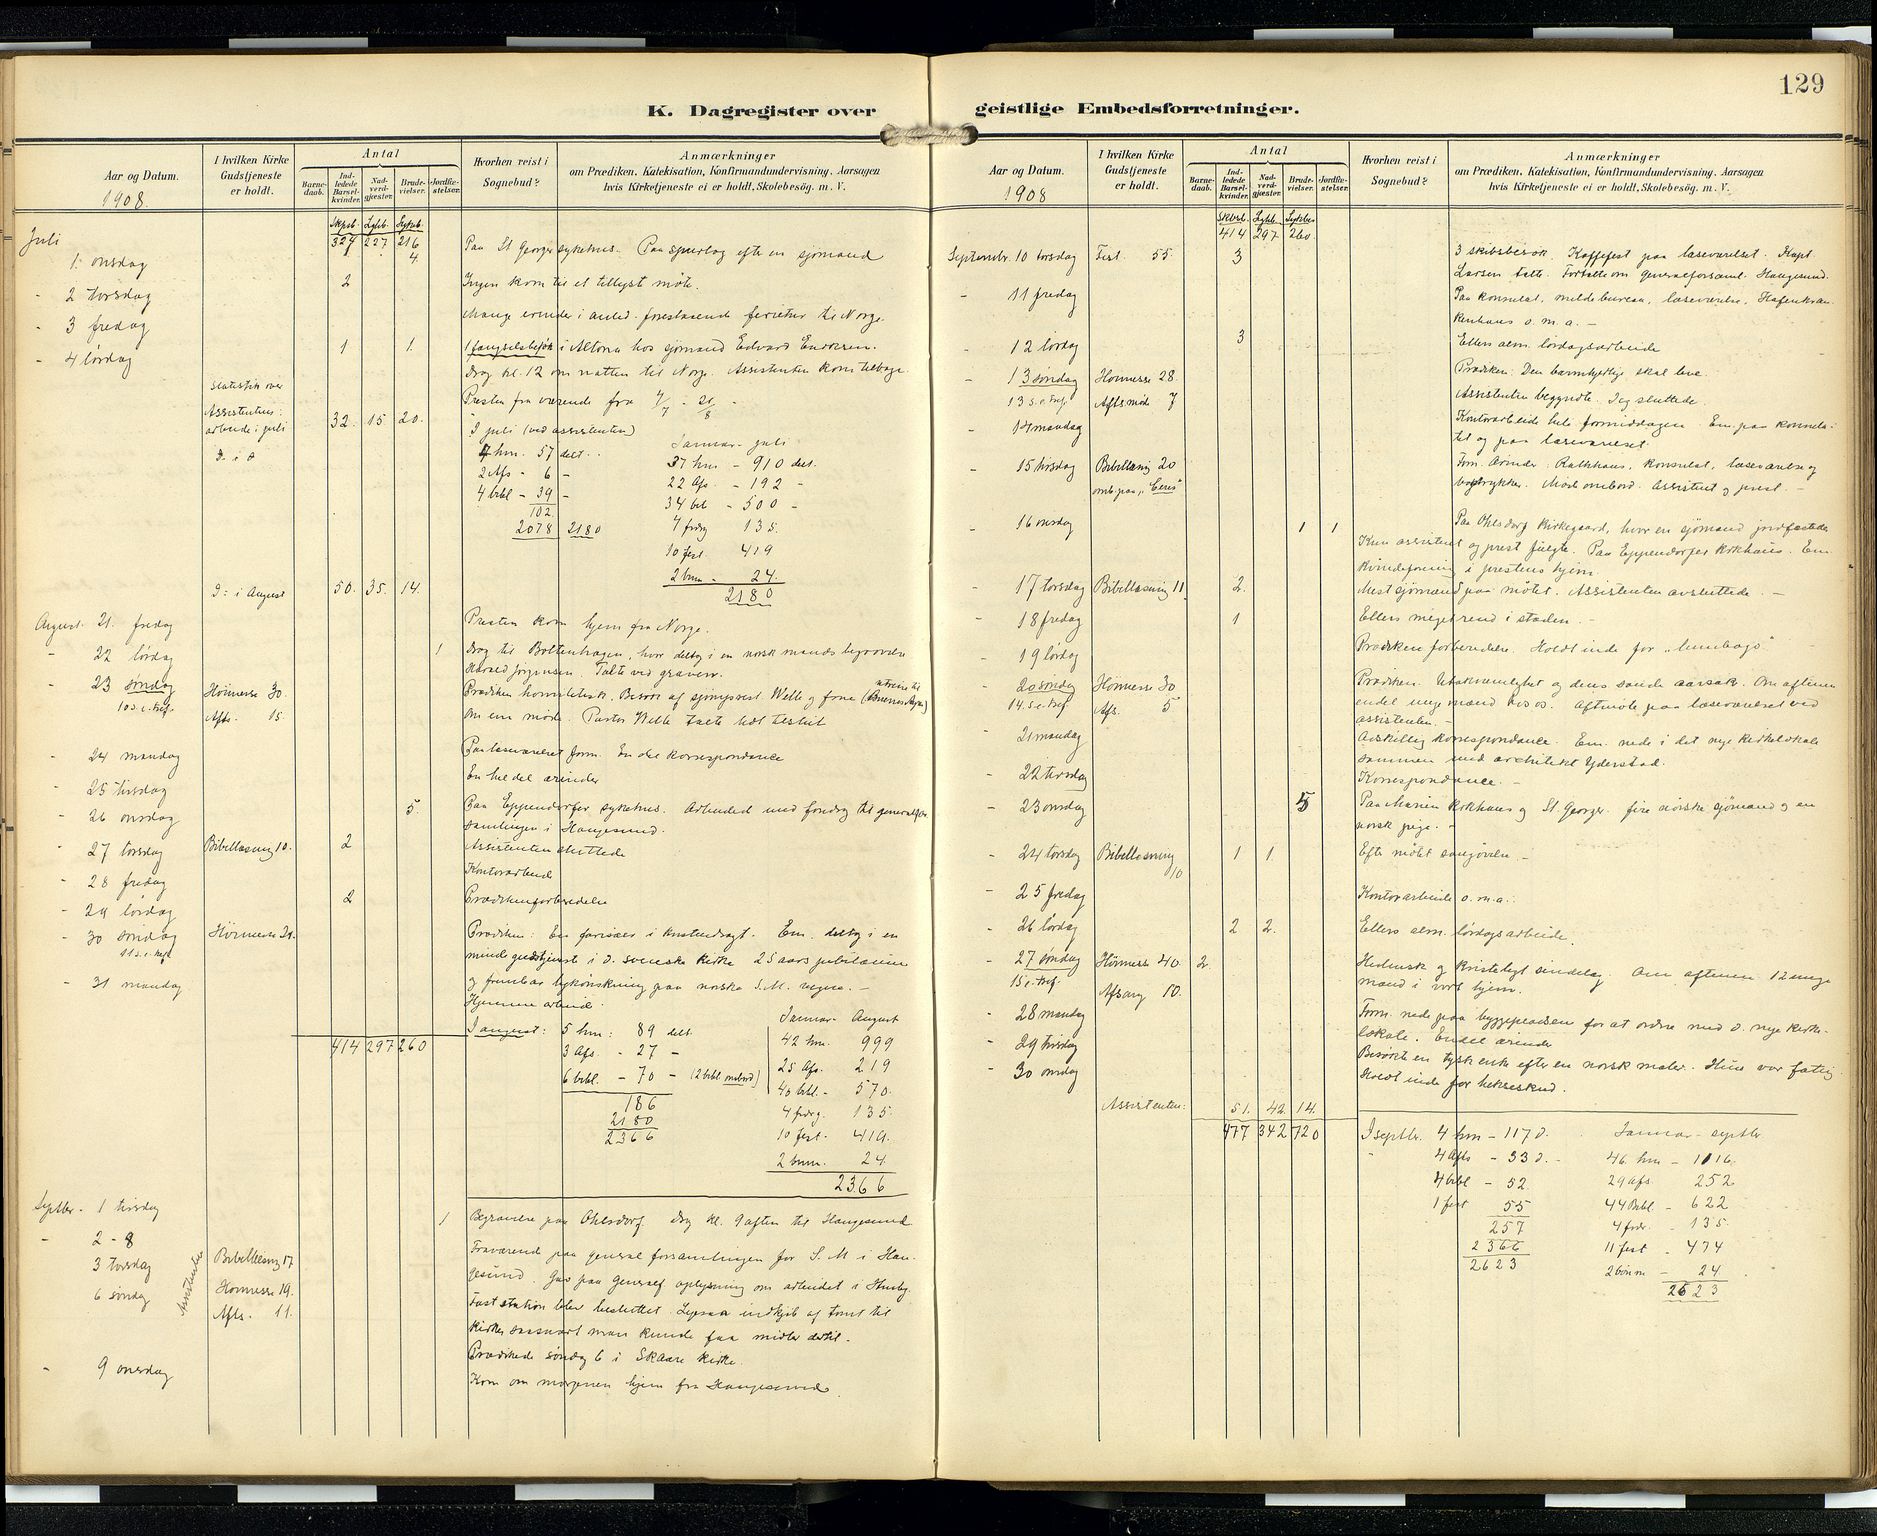 K. Dagregister over
Aar og Datum.
1908
I hvilken Kirke
Gudstjeneste
er holdt.
Antal
Barne-
daab.
Ind-
ledede
Barsel-
kvinder.
Nad-
verd-
gjæster.
Brude-
vielser.
Jordfæ-
stelser.
Hvorhen reist i
Sognebud?
Anmærkninger
om Prædiken. Katekisation, Konfirmandundervisning. Aarsagen
hvis Kirketjeneste ei er holdt, Skolebesøg. m. V.
Juli
327 227 216
1. onsdag 4. Paa St Georger sykehus. Paa spurlag efter en sjømand
- 2 torsdag 2 Ingen kom til et tillyst møte.
- 3 fredag Mange erinder i anled. forestaaende ferietur til Norge.
- 4 lørdag 1 1. 1 fængselsbesøk i Altona hos sjømand Edvard
Drog kl. 12 om natten til Norge. Assistenten kom tilbage.
statistik over
Assistentens
arbeide i juli 32. 15 20. Presten fraværende fra 4/7 - 21/8 -
I juli (ved assistenten) Januar - juli
4 hm. 57 delt. 37 hm - 910 delt.
2 Afs - 6 - 22 Afs. - 192 -
4 bibl - 39 - 34 bibl - 500 -
102. 4 fredg 135.
2078 2180 10 fest. 419
2 barn - 24.
2180
D: i August 50. 35. 14.
August. 21. fredag Presten kom hjem fra Norge.
- 22 lørdag 1 Drog til Boltenhagen, hvor deltog i en norsk mands begravelse
Harald Jørgensen. Talte ved graven.
- 23 søndag Høimesse 30. Præken homiletisk. Besøk af sjømpsest. Welle og frue
10 s. e. tref. Afts. 15. Om em møde. Pastor Welle talte
- 24 mandag Paa læseværelset form. En del korrespondance
- 25 tirsdag En hel del ærinder
- 26 onsdag 5. Paa Eppendorfer sykehus. Arbeidet med foredrag til generalfor-
samlingen i Haugesund.
- 27 torsdag Bibellæsning 10. 2 Assistenten sluttede
- 28 fredag Kontorarbeide
- 29 lørdag 2 Prækenforberedelse
- 30 søndag Høimesse 21. Præken: En farisæer i Em. deltog i en
11 s. e. tref. mindegudstjenst i d. svenske kirke 25 aars jubilæum
- 31 mandag og frembar lykønskning paa norske S.M. vegne. -
Hjemme arbeide.
414 297 260 I august: 5 hm: 89 delt Januar - August
3 Afs. - 27 - 42 hm. 999
6 bibl. - 70 - (2 bibl ombord) 25 Afs. 219
186 40 bibl. - 570.
2180 4 fredg. 135.
2366 10 fest. 419.
2 barn. 24.
2366
Septbr - 1 tirsdag 1 Begravelse paa Ohlsdorf. Drog kl. 9 aften til Haugesund
- 2 - 8 Fraværende paa general forsamlingen for S.M i Hau-
3 torsdag Bibellæsng 17 gesund. Gav paa generalf oplysning om arbeidet i
6 søndag Høimesse 19. Fast station blev besluttet. indkjøb af tomt til
Assistenten
Afts. 11. kirke saasnart man kunde faa midler dertil.
Prædikede søndag 6 i Skaare kirke.
- 9 onsdag Kom om morgenen hjem fra Haugesund.
129
geistlige Embedsforretninger.
Aar og Datum.
1908
I hvilken Kirke
Gudstjeneste
er holdt.
Antal
Barne-
daab.
Ind-
ledede
Barsel-
kvinder.
Nad-
verd-
gjæster.
Brude-
vielser.
Jordfæ-
stelser.
Hvorhen reist i
Sognebud?
Anmærkninger
om Prædiken. Katekisation, Konfirmandundervisning. Aarsagen
hvis Kirketjeneste ei er holdt, Skolebesøg. m. V.
414 297 260.
Septembr. 10 torsdag Fest. 55. 3 3 skibsbesøk. Kaffefest paa læseværelset. Kapt.
Larsen talte. Fortalte om generalforsaml. Haugesund.
- 11 fredag Paa konsulat, meldebureau, læseværelse, Hafenkran-
kenhaus o. m. a. -
- 12 lørdag 3 Ellers alm. lørdagsarbeide
- 13 søndag Høimesse 28. Præken: Den barmhjertige skal leve.
13 s. e. tref. Aftsmøde 7 Assistenten begyndte. Jeg sluttede.
- 14 mandag Kontorarbeide hele formiddagen. Em. paa konsula-
tet og paa læseværelset.
- 15 tirsdag Bibellæsnig 20 Form. ærinder. Rathhaus, konsulat, læseværelse og
omb. paa "Ceres" bogtrykker. Møde ombord. Assistent og prest. -
- 16 onsdag 1 1 Paa Ohlsdorf Kirkegaard, hvor en sjømand
Kun assistent og prest fulgte. Paa Eppendorfer Krkhaus. Em.
kvindeforening i prestens hjem.
- 17 torsdag Bibellæsning 11 2. Mest sjømænd paa møtet. Assistenten avsluttede. -
- 18 fredag 1 Ellers meget rend i staden. -
- 19 lørdag Præken forberedelse. Holdt inde for "lumbago"
- 20 søndag Høimesse 30 Præken: Utaknemlighet og dens sande aarsak. Om aftenen
14. s. e. tref. Afs. 5 endel unge mænd hos os. Aftmøte paa læseværelset ved
assistenten. -
- 21 mandag Adskillig korrespondance. Em. nede i det nye kirkelokale
sammen med architekt Yderstad.
- 22 tirsdag Korrespondance. -
- 23 onsdag 5 Paa Marien Krkhaus og St Georger. fire norske sjømænd og en
norsk pige. -
- 24 torsdag Bibellæsning 1 1. Efter møtet sangøvelse. -
10
- 25 fredag Kontorarbeide o. m. a.
- 26 lørdag 2 2. Ellers alm. lørdagsarbeide.
- 27 søndag Høimesse 40 2. Hedensk og kristeligt sindelag. Om aftenen 12 unge
15 e. tref. Afsang 10. mænd i vort hjem.
- 28 mandag Form. nede paa byggepladsen for at ordne med d. nye kirke-
- 29 tirsdag lokale. Endel ærinder
- 30 onsdag Besøkte en tysk enke efter en norsk maler. Hun var fattig.
Holdt inde for hekseskud.
Assistenten: 51. 42. 14.
477 342 720 I septbr. 4 hm - 117 d. Januar - septbr.
4 Afts - 33 d. - 46. hm - 1116.
4 bibl - 52. 29 afs. 252
1 fest 55 44 Bibl - 622
257 4 fredr. - 135.
2366 11 fest - 474
2623 2 børnm - 24
2623